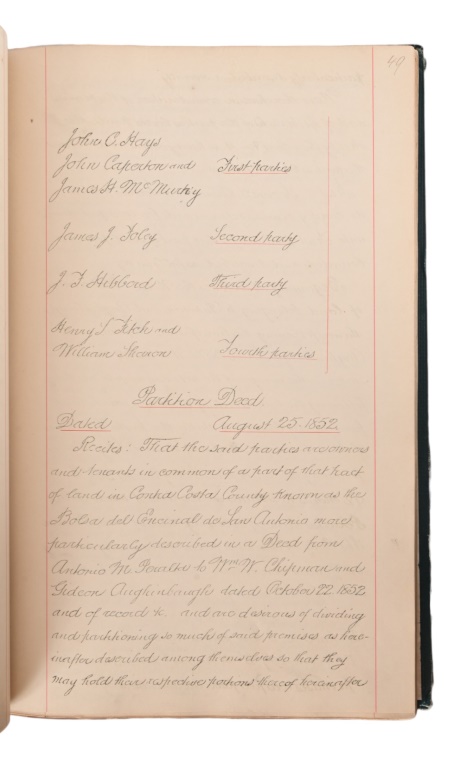 49
John C. Hays
John Caperton and First parties
James H. McMurtry
James J. Foley Second party
J. F. Hibberd Third party
Henry S Fitch and
William Sharon Fourth parties
Partition Deed
Dated August 25. 1852
Recites: That the said parties are owners
and tenants in common of a part of that tract
of land in Contra Costa County known as the
Bolsa del Encinal de San Antonio more
particularly described in a Deed from
Antonio M. Peralta to Wm. W. Chipman and
Gideon Aughenbaugh dated October 22. 1852
and of record &c. and are desirous of dividing
and partitioning so much of said premises as here-
inafter described among themselves so that they
may hold their respective portions thereof hereinafter